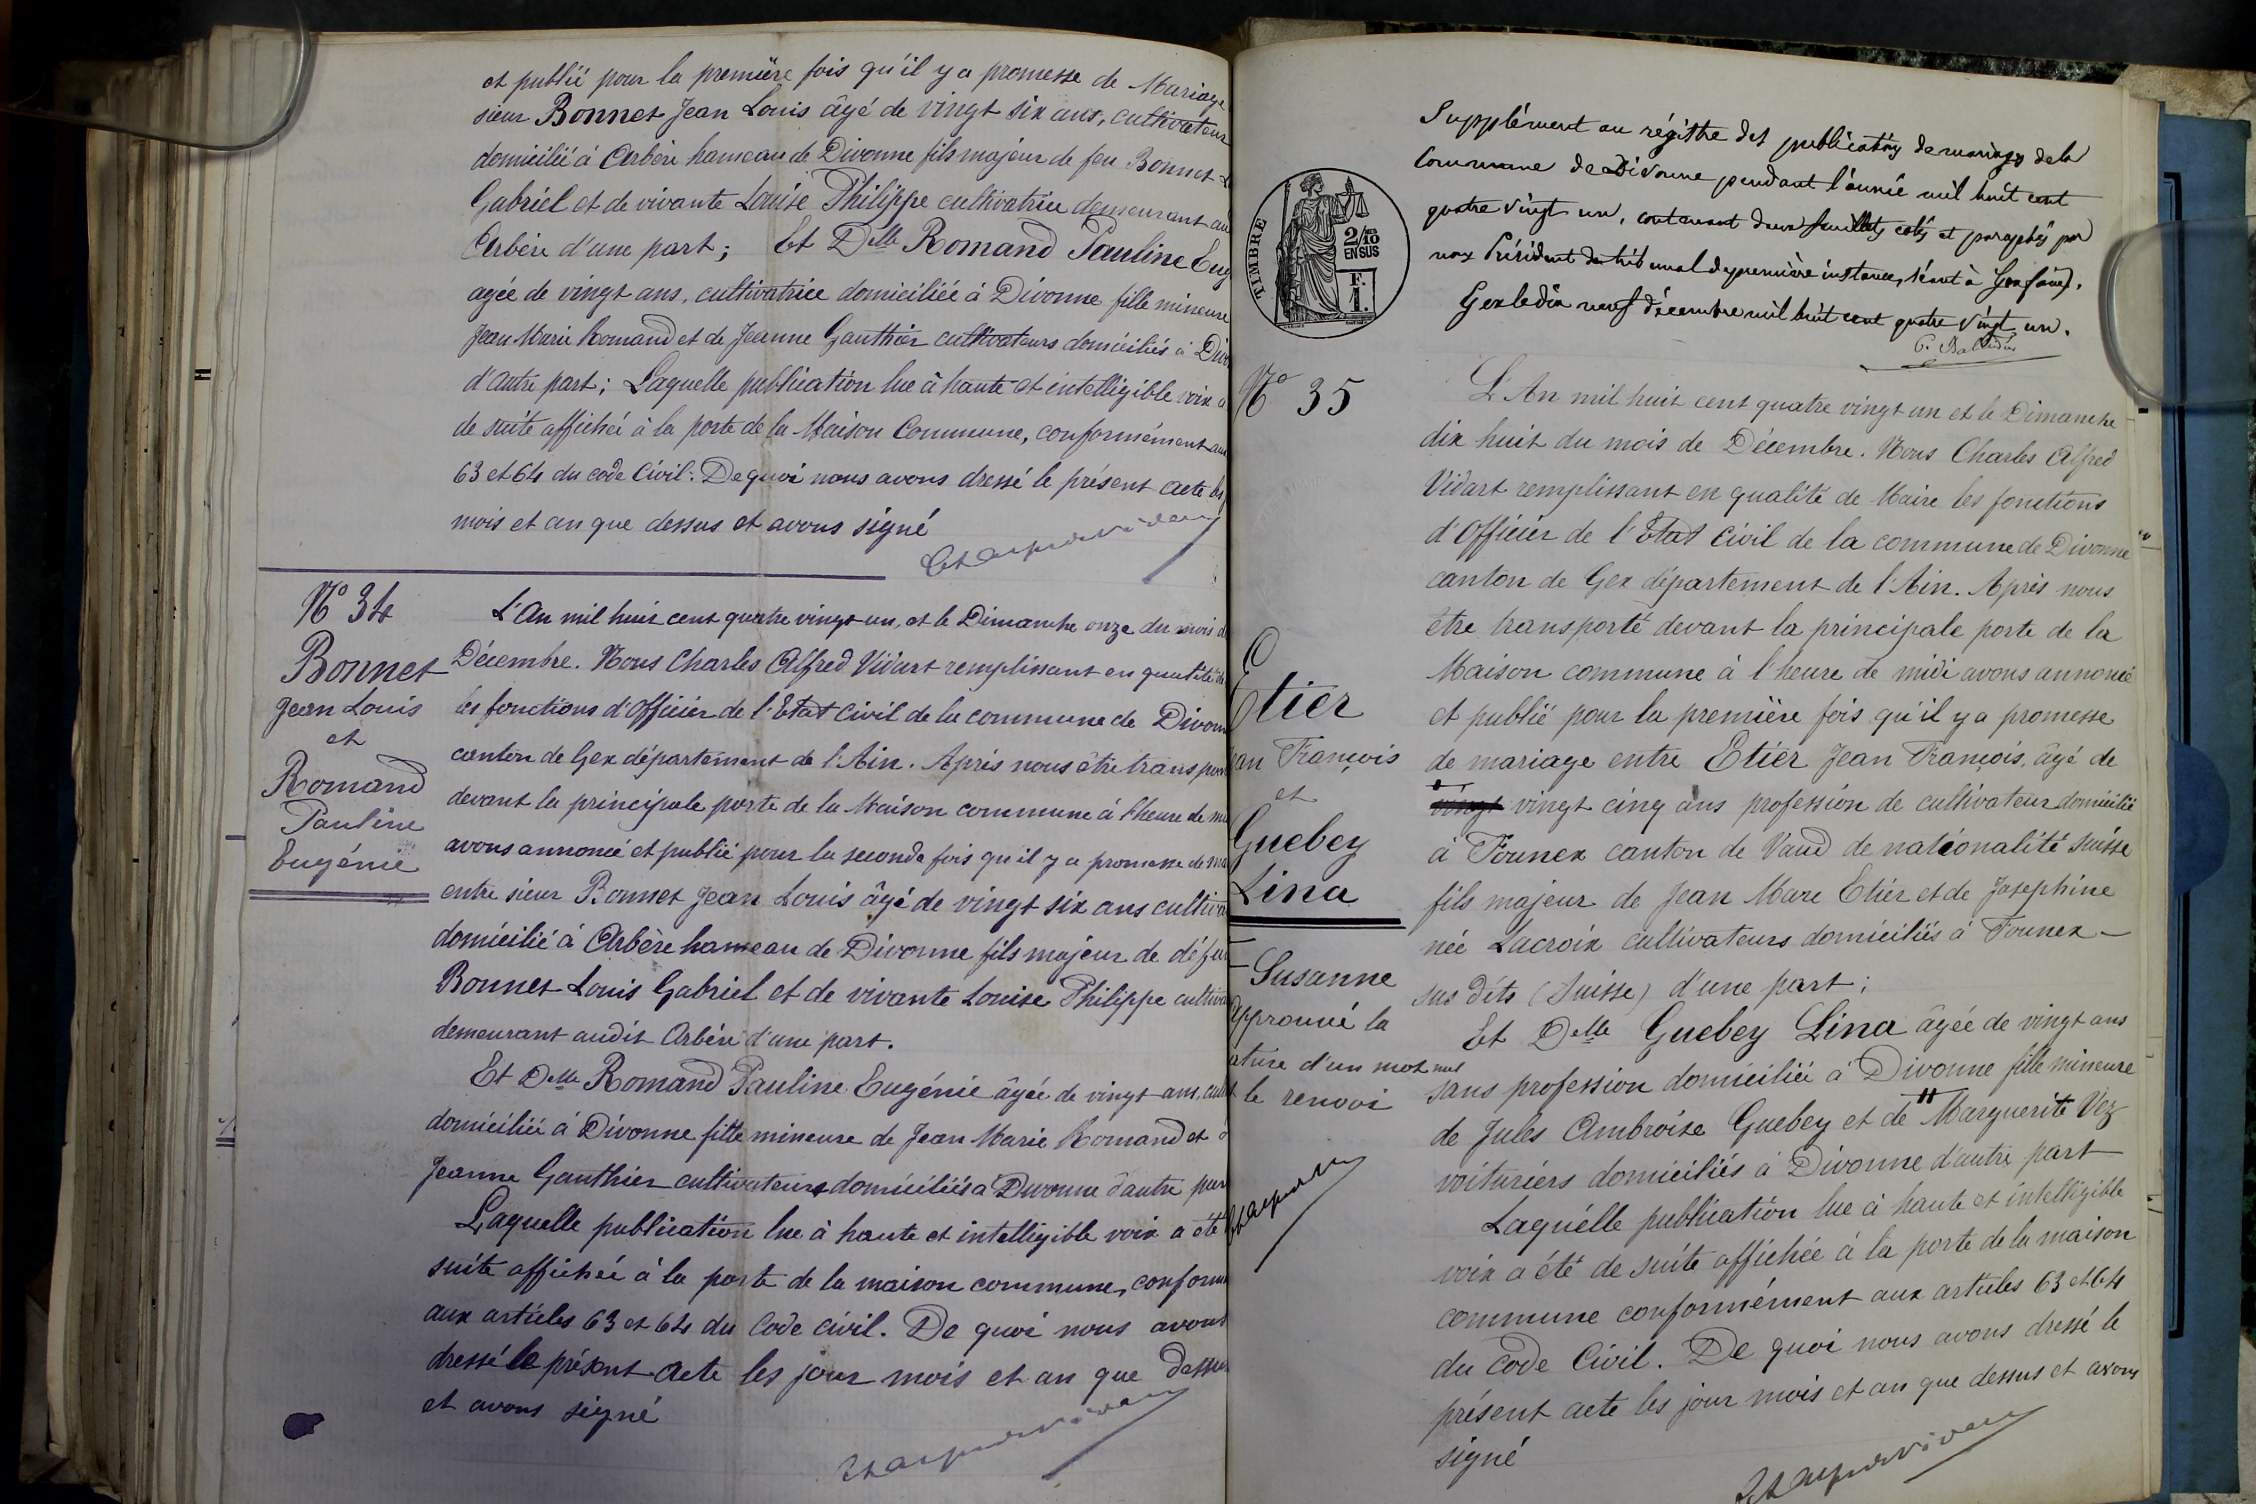 et publié pour la première fois qu'il y a promesse de Mariage
sieur Bonnet Jean Louis âgé de vingt six ans, cultivateur
domicilié à Arbère hameau de Divonne fils majeur de feu Bonnet
Gabriel et de vivante Louise Philippe cultivatrice demeurant au
Arbère d'une part; Et Delle Romand Pauline Eug
agée de vingt ans, cultivatrice domiciliée à Divonne fille mineure
Jean Marie Romand et de Jeanne Gauthier cultivateurs domiciliés à Divo
d'autre part; Laquelle publication lue à haute et intelligible voix a
de suite affichée à la porte de la Maison Commune, conformément aux
63 et 64 du code Civil: De quoi nous avons dressé le présent acte les
mois et an que dessus et avons signé
No 34
Bonnet
Jean Louis
et
Romand
Pauline
Eugénie
L'An mil huit cent quatre vingt un, et le Dimanche onze du mois d
Décembre. Nous Charles Alfred Vidart remplissant en qualité de
les fonctions d'Officier de l'Etat Civil de la commune de Divonn
canton de Gex département de l'Ain. Après nous être transpor
devant la principale porte de la Maison commune à l'heure de mi
avons annoncé et publié pour la seconde fois qu'il y a promesse de ma
entre sieur Bonnet Jean Louis âgé de vingt six ans cultiva
domicilié à Arbère hameau de Divonne fils majeur de défun
Bonnet Louis Gabriel et de vivante Louise Philippe cultiva
demeurant audit Arbère d'une part.
Et Delle Romand Pauline Eugénie âgée de vingt ans, cult
domiciliée à Divonne fille mineure de Jean Marie Romand et d
Jeanne Gauthier cultivateurs domiciliés à Divonne d'autre par
Laquelle publication lue à haute et intelligible voix a été
suite affichée à la porte de la maison commune, conform
aux articles 63 et 64 du Code civil. De quoi nous avons
dressé le présent acte les jour mois et an que dessus
et avons signé
Supplément au régistre des publications de mariages de la
Commune de Divonne pendant l'année mil huit cent
quatre vingt un, contenant deux feuillets cotés et paraphés par
nous Président du tribunal de première instance, séant à Gex (ain).
Gex le dix neuf décembre mil huit cent quatre vingt un.
TIMBRE
2/10
EN SUS
F.
1.
No 35
Etier
Jean François
et
Guebey
Lina
L'An mil huit cent quatre vingt un et le Dimanche
dix huit du mois de Décembre. Nous Charles Alfred
Vidart remplissant en qualité de Maire les fonctions
d'Officier de l'Etat Civil de la commune de Divonne
canton de Gex département de l'Ain. Après nous
être transporté devant la principale porte de la
Maison commune à l'heure de midi avons annoncé
et publié pour la première fois qu'il y a promesse
de mariage entre Etier Jean François, âgé de
vingt vingt cinq ans profession de cultivateur domicilié
à Founex canton de Vaud de nationalité suisse
fils majeur de Jean Marc Etier et de Josephine
née Lacroix cultivateurs domiciliés à Founex
sus dits (Suisse) d'une part;
Et Delle Guebey Lina âgée de vingt ans
sans profession domiciliée à Divonne fille mineure
de Jules Ambroise Guebey et de Marguerite Vez
voituriers domiciliés à Divonne d'autre part
Laquelle publication lue à haute et intelligible
voix a été de suite affichée à la porte de la maison
commune conformément aux articles 63 et 64
du code Civil. De quoi nous avons dressé le
présent acte les jour mois et an que dessus et avons
signé
Susanne
Approuvé la
ature d'un mot nul
et le renvoi